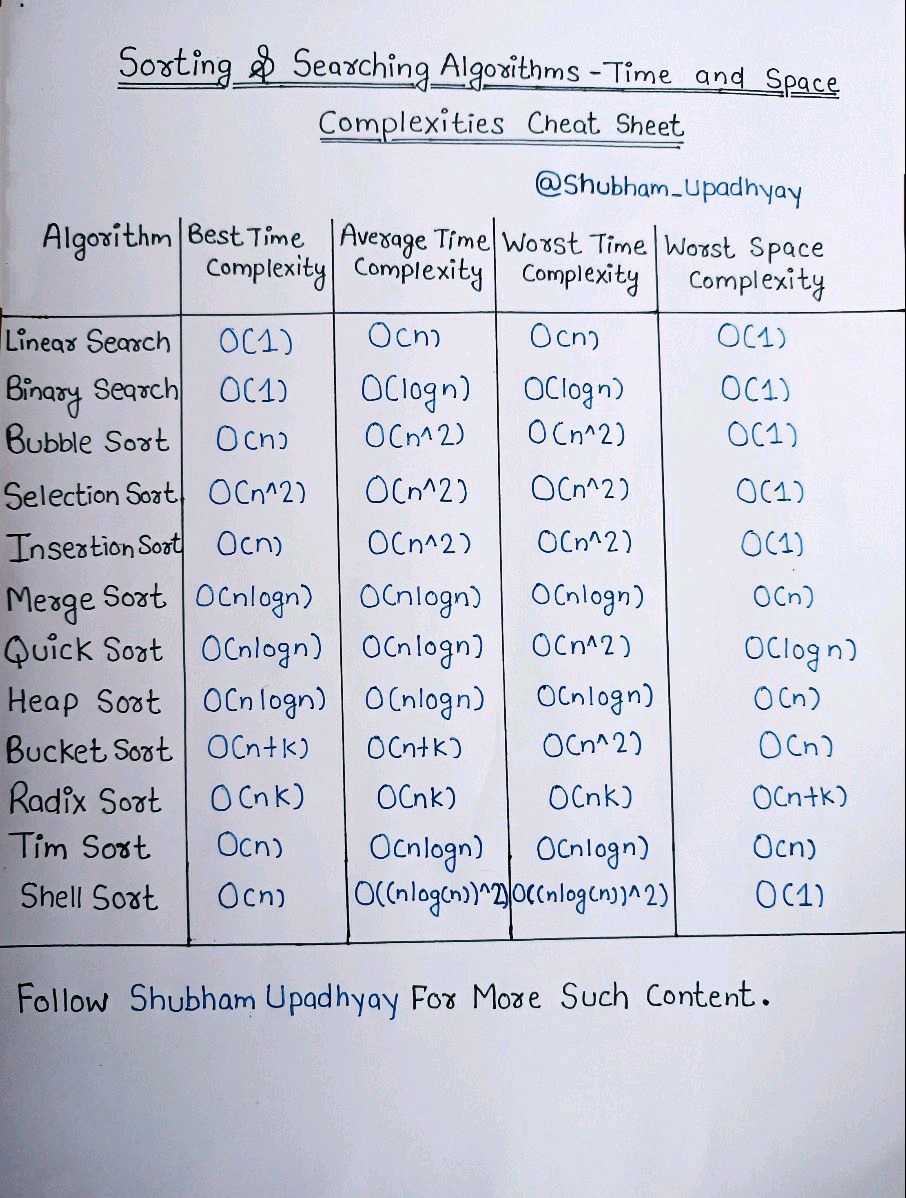 Sorting & Searching Algorithms - Time and Space
Complexities Cheat Sheet
@Shubham_Upadhyay
Algorithm | Best Time Complexity | Average Time Complexity | Worst Time Complexity | Worst Space Complexity
Linear Search | O(1) | O(n) | O(n) | O(1)
Binary Search | O(1) | O(logn) | O(logn) | O(1)
Bubble Sort | O(n) | O(n^2) | O(n^2) | O(1)
Selection Sort | O(n^2) | O(n^2) | O(n^2) | O(1)
Insertion Sort | O(n) | O(n^2) | O(n^2) | O(1)
Merge Sort | O(nlogn) | O(nlogn) | O(nlogn) | O(n)
Quick Sort | O(nlogn) | O(nlogn) | O(n^2) | O(logn)
Heap Sort | O(nlogn) | O(nlogn) | O(nlogn) | O(n)
Bucket Sort | O(n+k) | O(n+k) | O(n^2) | O(n)
Radix Sort | O(nk) | O(nk) | O(nk) | O(n+k)
Tim Sort | O(n) | O(nlogn) | O(nlogn) | O(n)
Shell Sort | O(n) | O((nlog(n))^2) | O((nlog(n))^2) | O(1)
Follow Shubham Upadhyay For More Such Content.